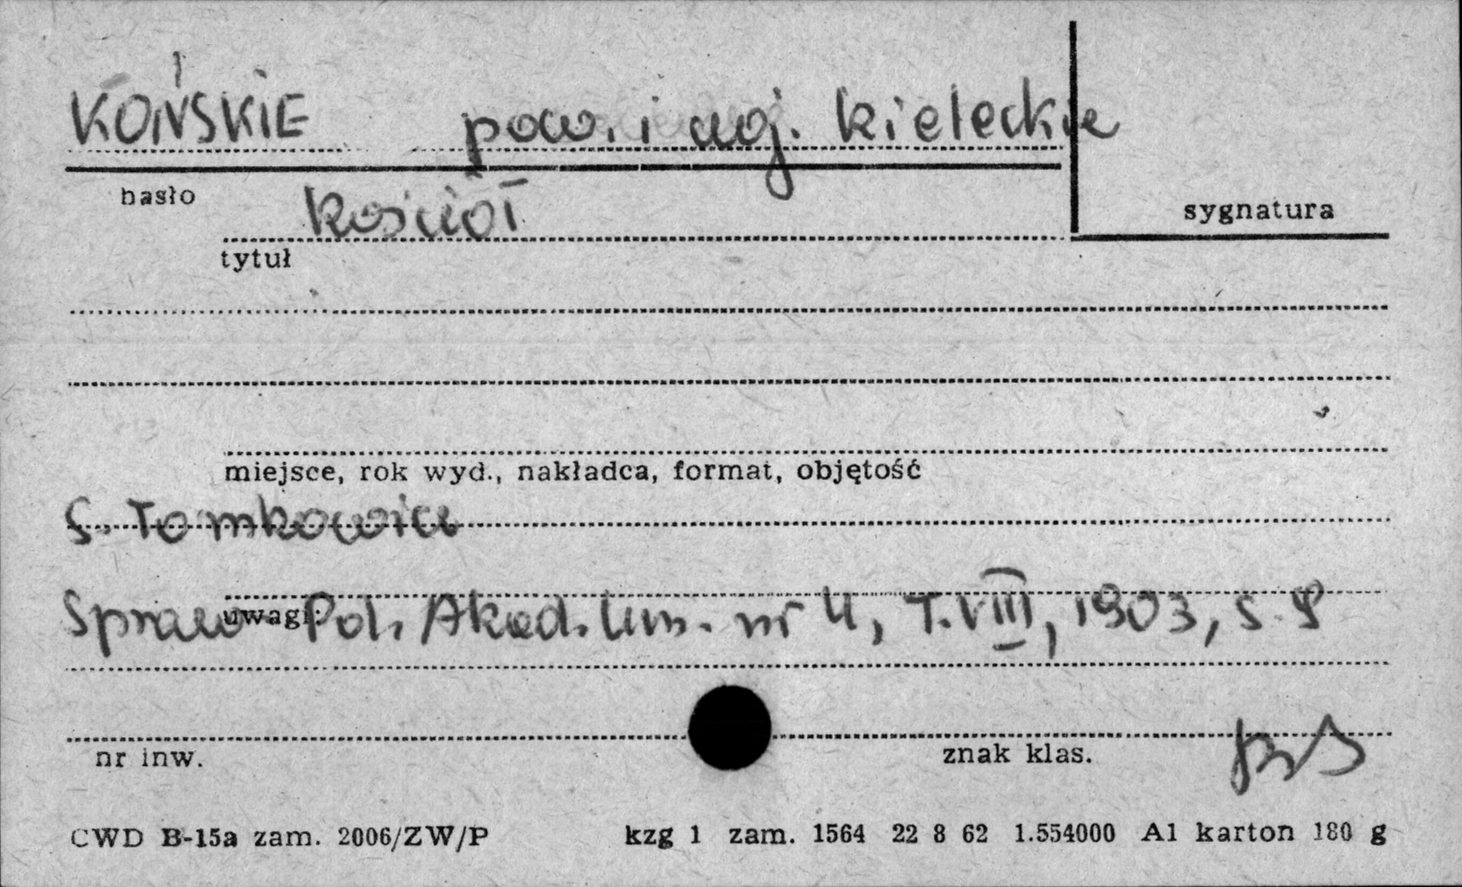 KOŃSKIE pow. i woj. kieleckie
hasło
sygnatura
kościół
tytuł
miejsce, rok wyd., nakładca, format, objętość
S. Tomkowicz
uwagi:
Spraw. Pol. Akad. Um. nr 4, T. VIII, 1903, s. 9
nr inw.
znak klas.
CWD B-15a zam. 2006/ZW/P kzg 1 zam. 1564 22 8 62 1.554000 A1 karton 180 g